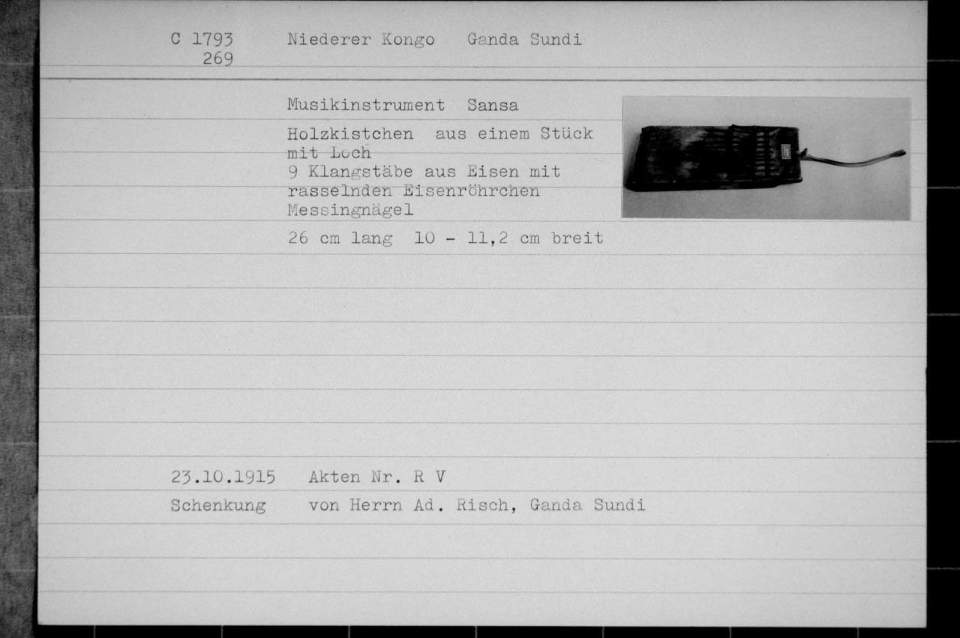 C 1793 Niederer Kongo Ganda Sundi
269
Musikinstrument Sansa
Holzkistchen aus einem Stück
mit Loch
9 Klangstäbe aus Eisen mit
rasselnden Eisenröhrchen
Messingnägel
26 cm lang 10 - 11,2 cm breit
23.10.1915 Akten Nr. R V
Schenkung von Herrn Ad. Risch, Ganda Sundi